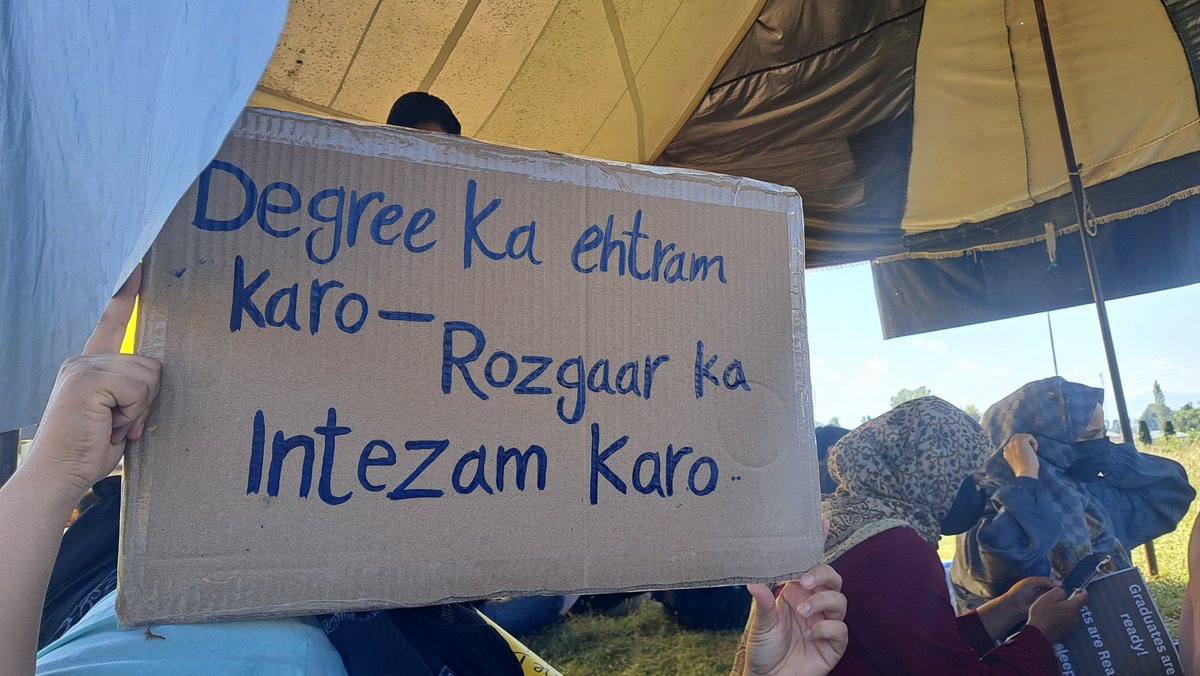 Degree Ka ehtram
Karo—
Rozgaar ka
Intezam Karo..
Graduates are
ready!
sts are Rea
sleep